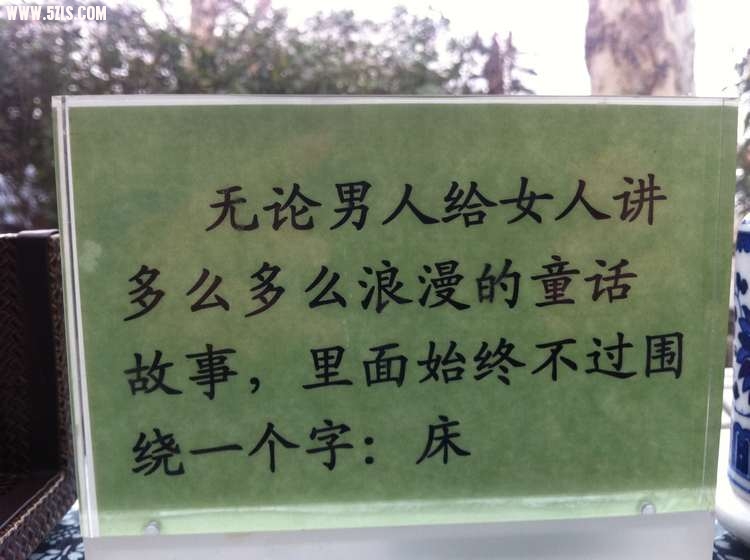 WWW.5ZLS.COM
无论男人给女人讲
多么多么浪漫的童话
故事，里面始终不过围
绕一个字：床